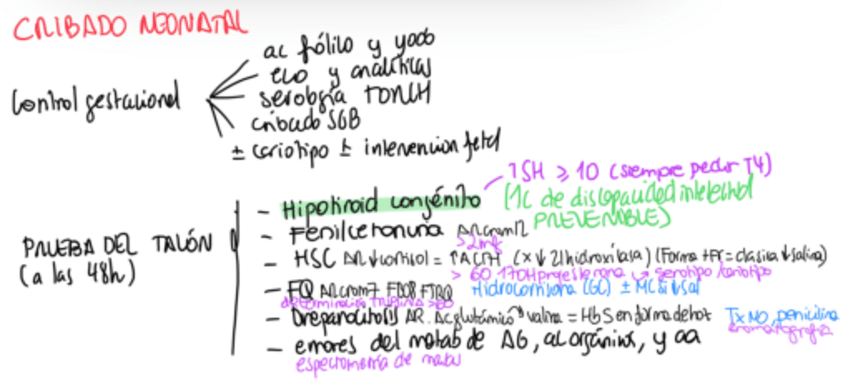 CRIBADO NEONATAL
Control gestacional
ac fólico y yodo
eco y analíticas
serología TORCH
cribado SGB
± cariotipo ± intervención fetal
TSH ≥ 10 (siempre pedir T4)
PRUEBA DEL TALÓN
(a las 48h)
- Hipotiroid congénito (1c de discapacidad intelectual
PREVENIBLE)
- Fenilcetonuria AR crom12
>2mg
- HSC AR ↓cortisol = ↑ACTH (x ↓ 21hidroxilasa) (Forma +Fr = clásica ↓ salina)
> 60 17OHprogesterona → serotipo/cariotipo
- FQ AR crom7 F508 FTRQ Hidrocortisona (GC) ± MC &
determinación TRIPSINA >60
- Drepanocitosis AR. Ac glutámico → valina = HbS en forma de hoz Tx NO, penicilina
cromatografía
- errores del metab de AG, ac orgánicos, y aa
espectrometría de masas